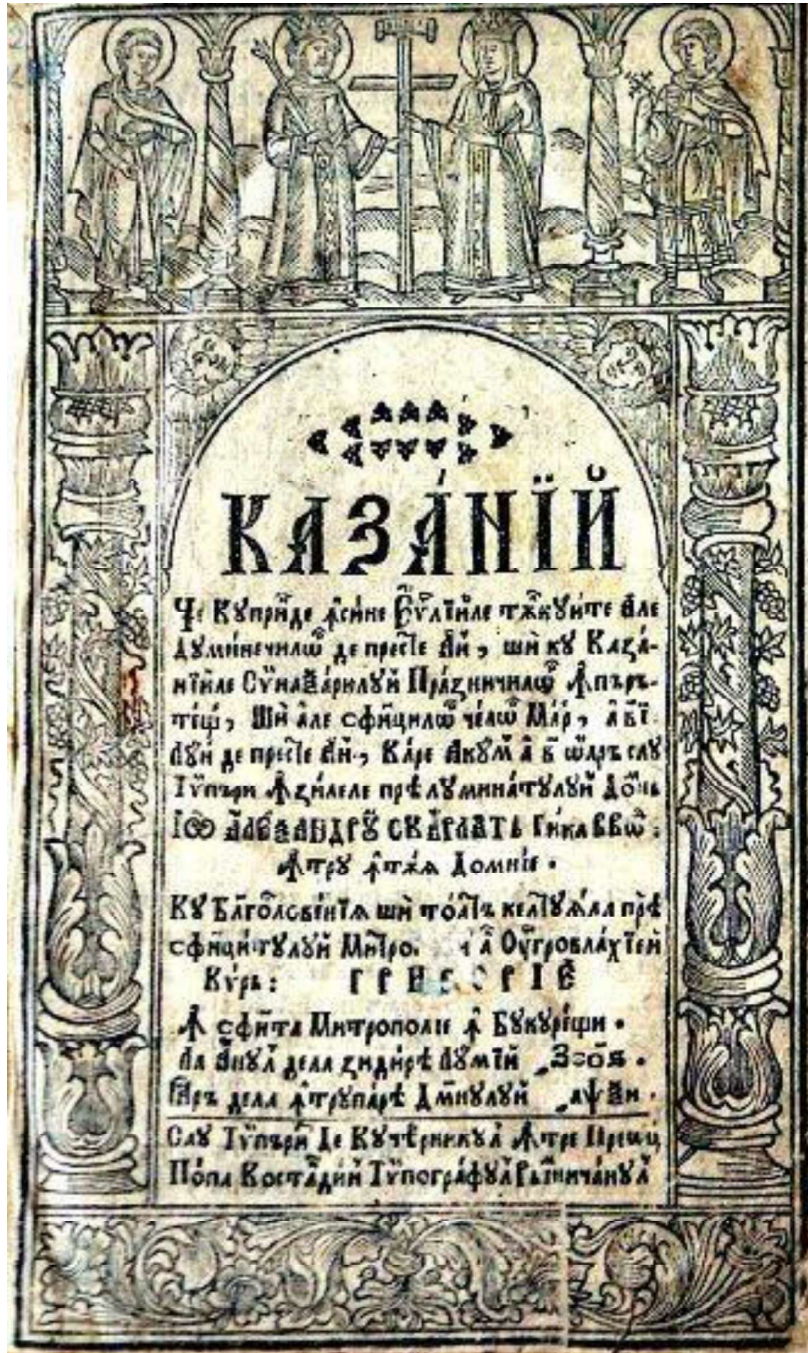 КАЗА́НЇЙ
Че Купри́де ꙟ҆сине Еѵⷢ҇лїиле тъ́лкуите але
Думи́нечилѡⷬ҇ де престе А҆й, ши ку Каза́-
нїиле Сѷнаѯа́рилꙋй Пра́зничилѡⷬ҇ ꙟ҆пъръ-
те́щй, Ши але сфи́нцилѡⷬ҇ че́лѡⷬ҇ Ма́рй,
де престе А҆й, Ка́ре Аку́м а҆ в҃ ѡ҆а́ръ сау
Тѷпъри́т ꙟ҆ зи́леле прѣ лумина́тулуй До́мнь
Іѡ҃ АЛЕѮАНДРꙊ СКАРЛАТЬ ГИКА ВВѡⷣ:
ꙟ҆тру ꙟ҆тѫѧ Домніе.
Кꙋ Благослове́нїѧ ши то́атъ келтуѧла прѣ
сфинци́тулуй Митро. а҆ Оу҆гровла́хїей
Кѵ́рь: ГРИГОРІЕ
ꙟ҆ сфи́нта Митрополіе ꙟ҆ Букуре́щи.
Ла А҆нул дела зиди́рѣ лу́мїй ҂зсо҃ѕ.
Іаръ дела ꙟ҆трупа́рѣ Дⷨ҇нулуй ҂аѱ҃ѯи.
Сау Тѷпъри́т Де Куче́рникул ꙟ҆тре Прео́цй
По́па Костанди́н Тѷпогра́фул Ръ́мничѣнул